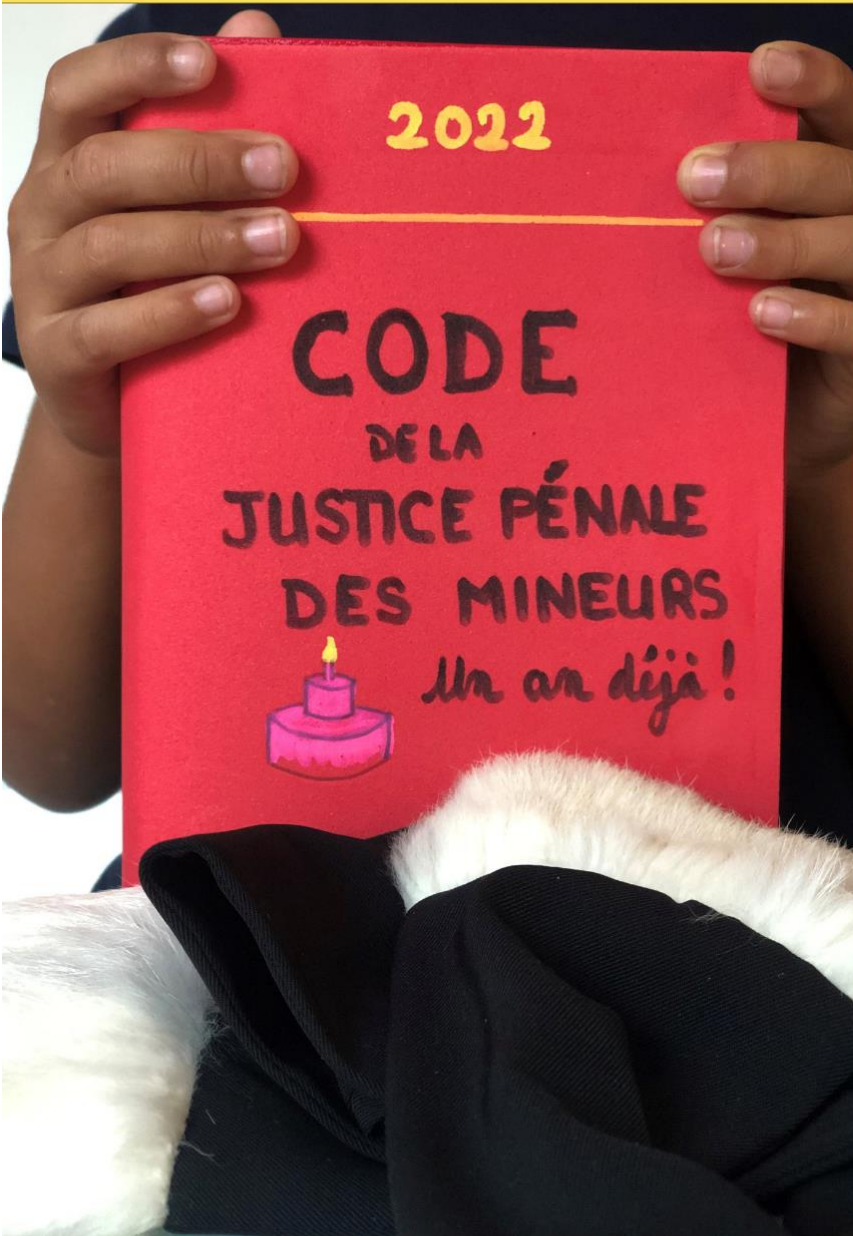 2022
CODE
DE LA
JUSTICE PÉNALE
DES MINEURS
Un an déjà !